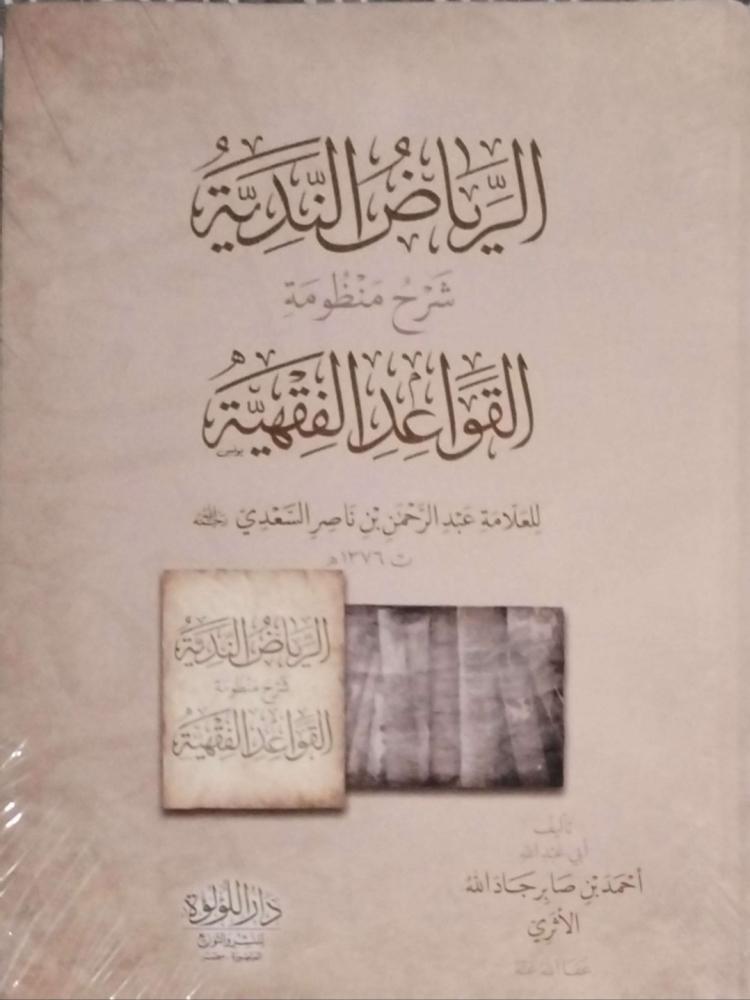 الرِّيَاضُ النَّدِيَّةُ
شَرْحُ مَنْظُومَةِ
القَوَاعِدِ الفِقْهِيَّةِ
لِلعَلَّامَةِ عَبْدِ الرَّحْمَنِ بْنِ نَاصِرِ السَّعْدِيِّ رَحِمَهُ اللهُ
ت ١٣٧٦هـ
الرِّيَاضُ النَّدِيَّةُ
شَرْحُ مَنْظُومَةِ
القَوَاعِدِ الفِقْهِيَّةِ
تأليف
أبي عبد الله
أَحْمَدَ بْنِ صَابِر جَادَ اللهُ
الأَثَرِيّ
عفا الله عنه
دَارُ اللُّؤْلُؤَة
للنشر والتوزيع
المنصورة - مصر